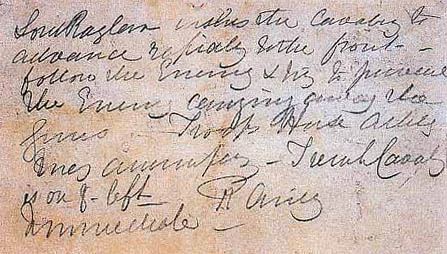 Lord Raglan wishes the Cavalry to
advance rapidly to the front –
follow the Enemy & try to prevent
the Enemy carrying away the
guns – Troop Horse Artily
may accompany – French Cavaly
is on yr left
Immediate R Airey